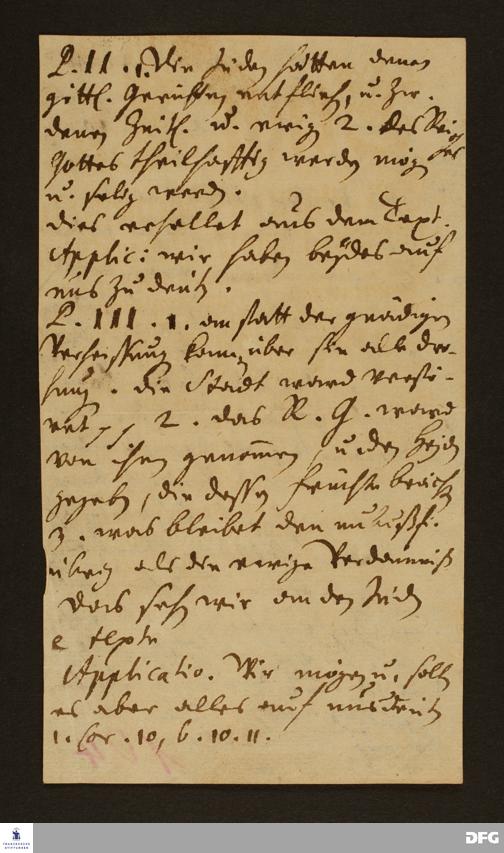 P. II. 1. Die Juden hätten denen
göttl. Gerichten entfliehen, u. 
denen Zeitl. u. ewig 2. des Reiches
Gottes theilhafftig werden mög
u. selig werden.
dies erhellet aus dem Text.
Applic: wir haben beydes auf
uns zu deut.
P. III. 1. an statt der gnädigen
Verheissung kam über sie alle dro-
hung. die Stadt ward verstö-
ret 2. das R. G. ward
von ihnen genommen, u. den Heiden
gegeben, die dessen früchte bringen
3. was bleibet den unbußf.
übrig als die ewige Verdammniß
das sehen wir an den Juden
e textu
Applicatio. Wir mögen u. sollen
es aber alles auf uns deuten
1. Cor. 10, 6. 10. 11.
FRANCKESCHE
STIFTUNGEN
DFG